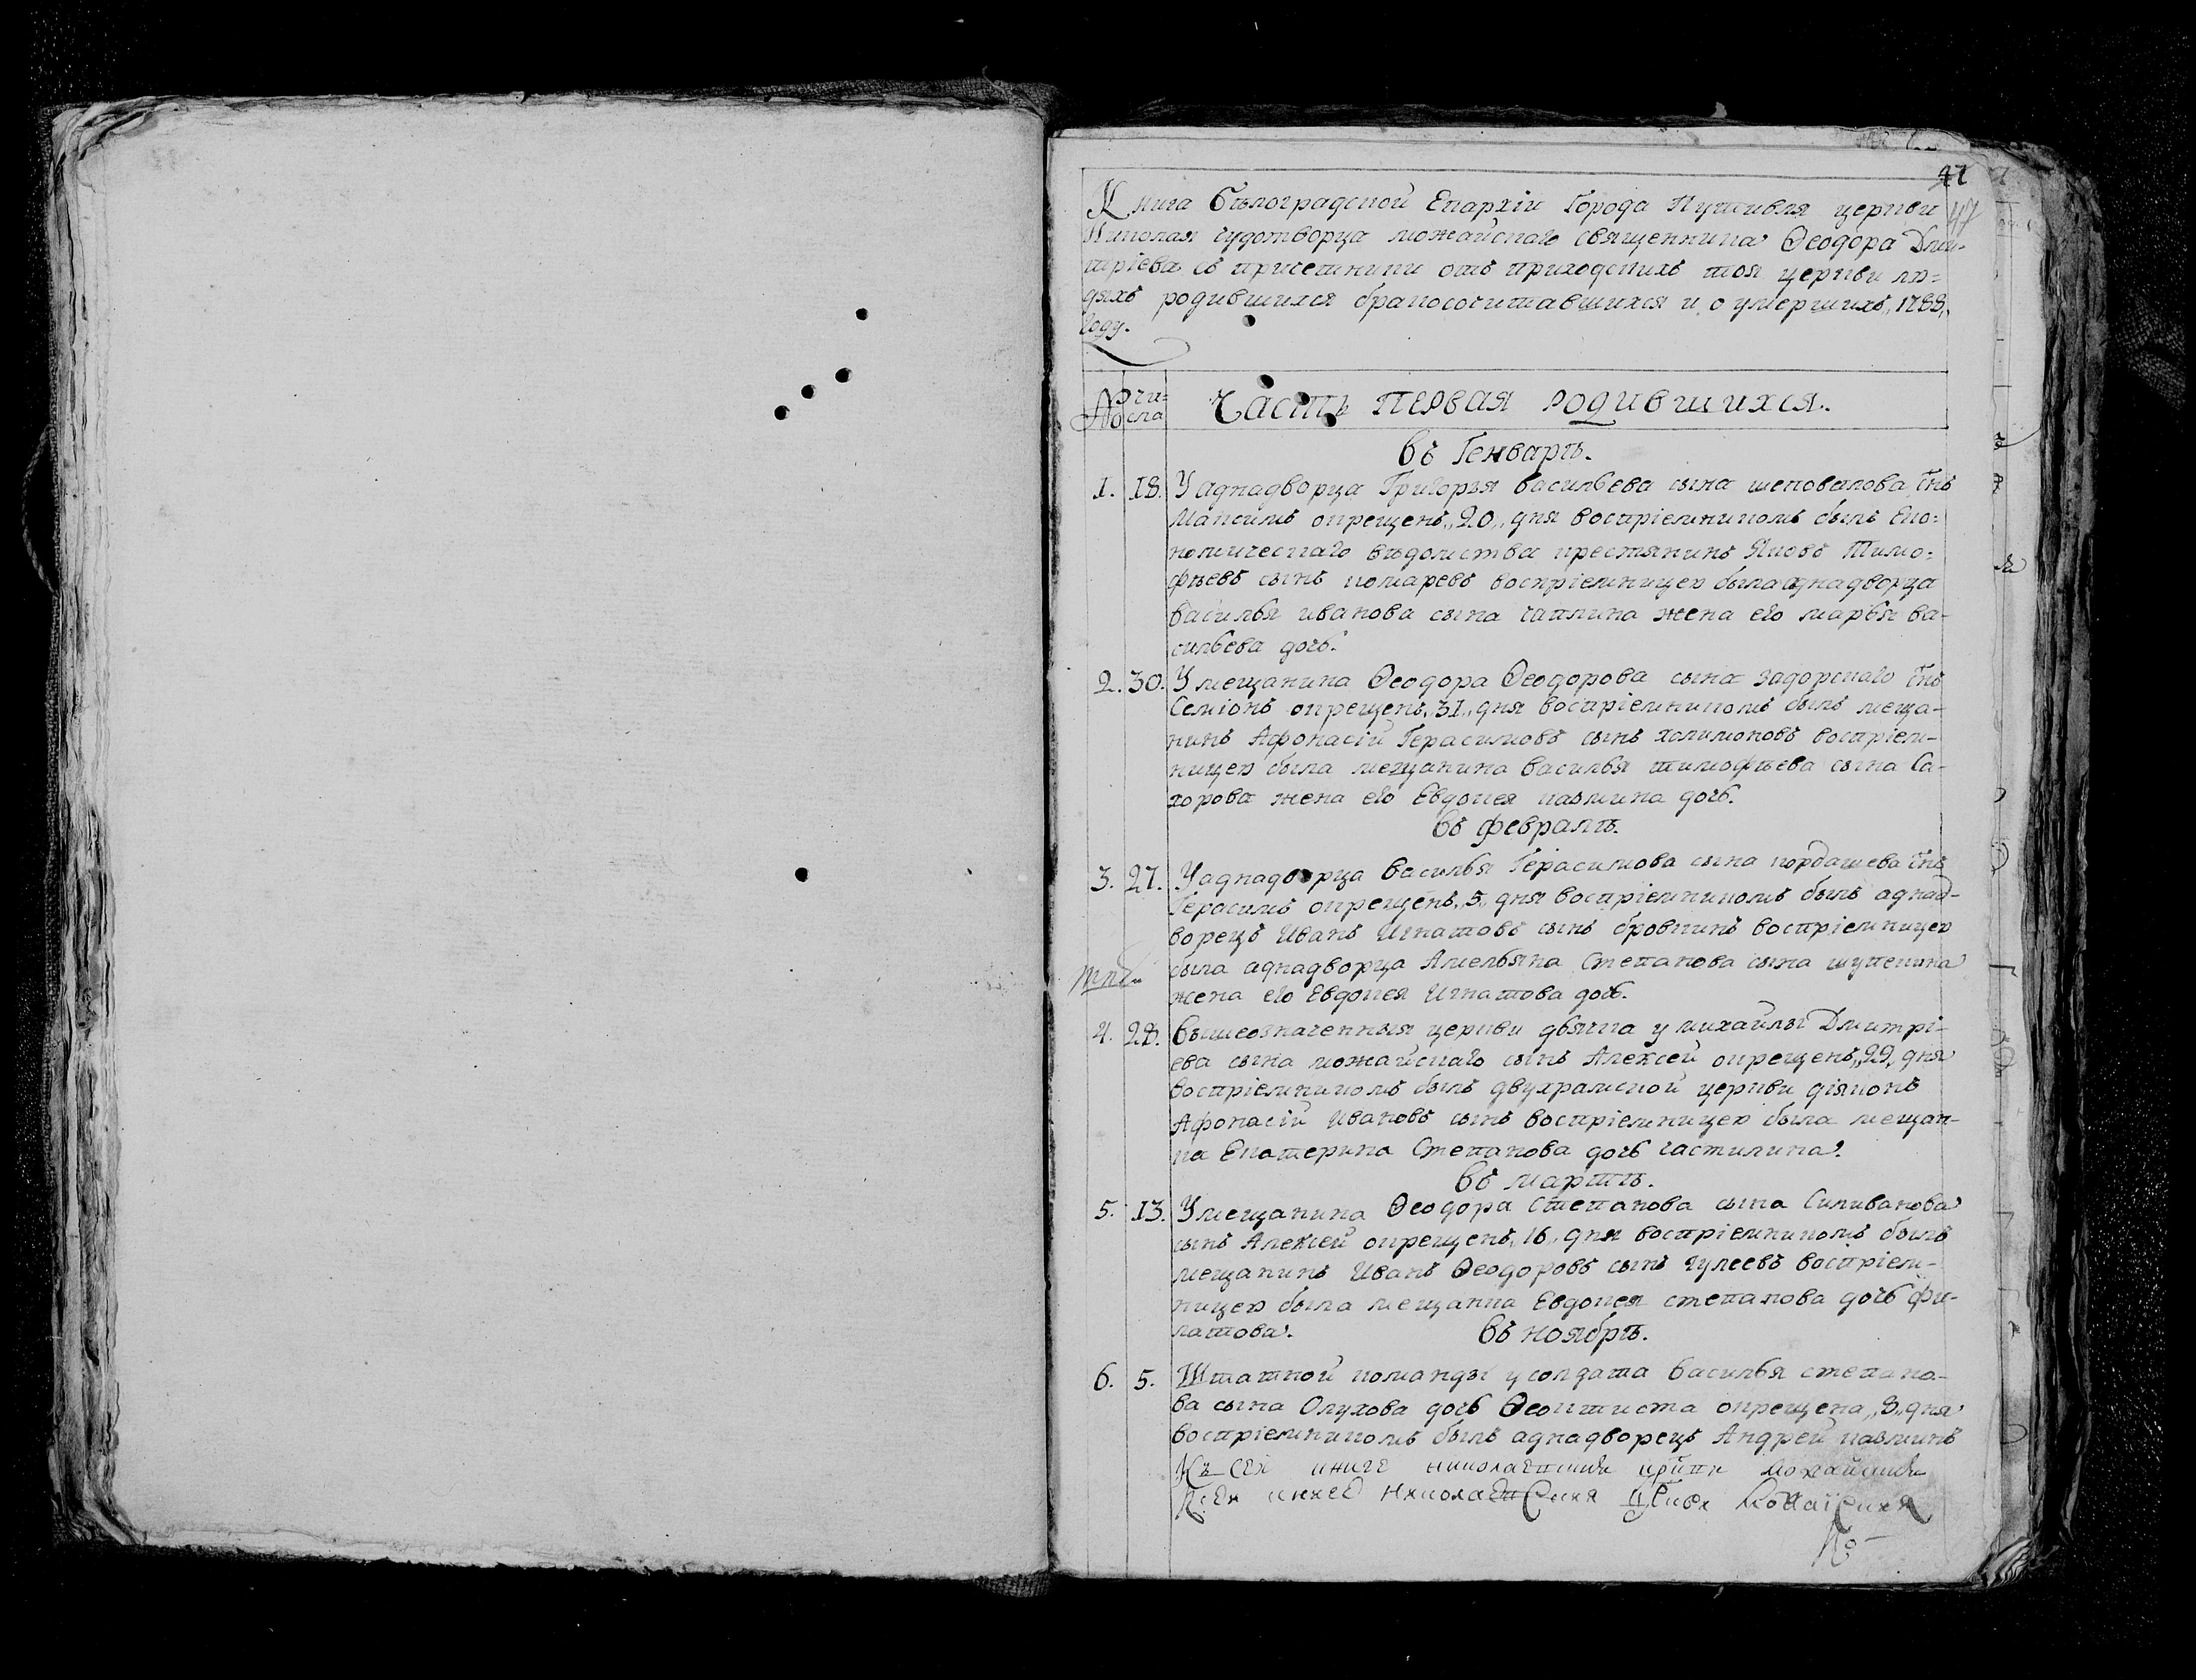 41
47
Книга Бѣлоградской Епархіи Города Путивля церкви
Николая чудотворца можайскаго священника Ѳеодора Дми-
тріева съ причетники отъ приходскихъ тоя церкви лю-
дяхъ родившихся бракосочитавшихся и о умершихъ, 1788,
году.
№ чи-
сла
Часть первая родившихся.
въ Генварѣ.
1. 18. У аднадворца Григорья васильева сына шеповалова снъ
Максимъ окрещенъ „20„ дня воспріемникомъ былъ Еко-
номическаго вѣдомства крестянинъ Яковъ Тимо-
фѣевъ сынъ комаревъ воспріемницею была аднадворца
Василья иванова сына чаплина жена его марья ва-
сильева дочь.
2. 30. У мещанина Ѳеодора Ѳеодорова сына задорскаго снъ
Семіонъ окрещенъ „31„ дня воспріемникомъ былъ меща-
нинъ Афонасій Герасимовъ сынъ холимоновъ воспріем-
ницею была мещанина василья тимофѣева сына Са-
хорова жена его Евдокея козмина дочь.
въ февралѣ.
3. 27. У аднадворца василья Герасимова сына кордашева снъ
Герасимъ окрещенъ „5„ дня воспріемникомъ былъ аднад-
ворецъ Иванъ Игнатовъ сынъ бровкинъ воспріемницею
была аднадворца Амельяна Степанова сына шупенина
жена его Евдокея Игнатова дочь.
4. 28. вышеозначенныя церкви дьячка у михайлы Дмитрі-
ева сына можайскаго сынъ Алексей окрещенъ „29„ дня
воспріемникомъ былъ двухрамской церкви діяконъ
Афонасій Ивановъ сынъ воспріемницею была мещан-
ка Екатерина Степанова дочь частилина.
въ мартѣ.
5. 13. У мещанина Ѳеодора Степанова сына Силиванова
сынъ Алексей окрещенъ „16„ дня воспріемникомъ былъ
мещанинъ Иванъ Ѳеодоровъ сынъ гулеевъ воспріем-
ницею была мещанка Евдокея степанова дочь фи-
латова.
въ ноябрѣ.
6. 5. Штатной команды у солдата василья степано-
ва сына Олухова дочь Ѳеоктиста окрещена „8„ дня
воспріемникомъ былъ аднадворецъ Андрей козминъ
Къ сей книге николаевския